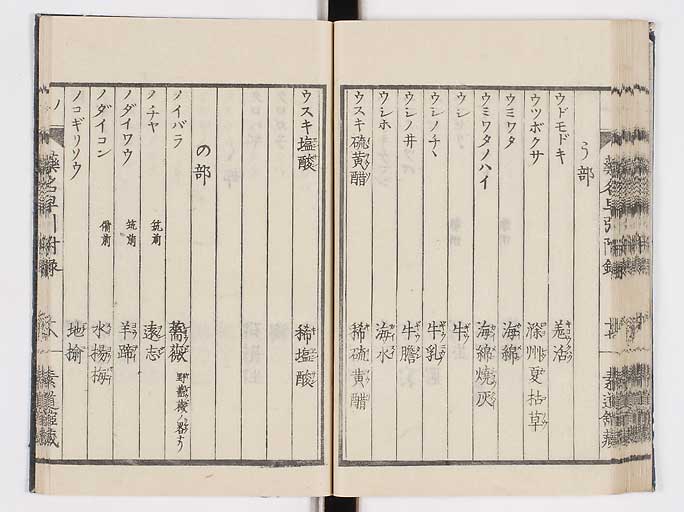 う部
ウドモドキ 羗活
ウツボクサ 滁州夏枯草
ウミワタ 海綿
ウミワタノハイ 海綿焼灰
ウシ 牛
ウシノチヽ 牛乳
ウシノ井 牛膽
ウシホ 海水
ウスキ硫黄醋 稀硫黄醋
ウスキ塩酸 稀塩酸
の部
ノイバラ 薔薇
ノチヤ 筑前 遠志
ノダイワウ 筑前 羊蹄
ノダイコン 備前 水楊梅
ノコギリソウ 地揄
ノ 藥名早引附録